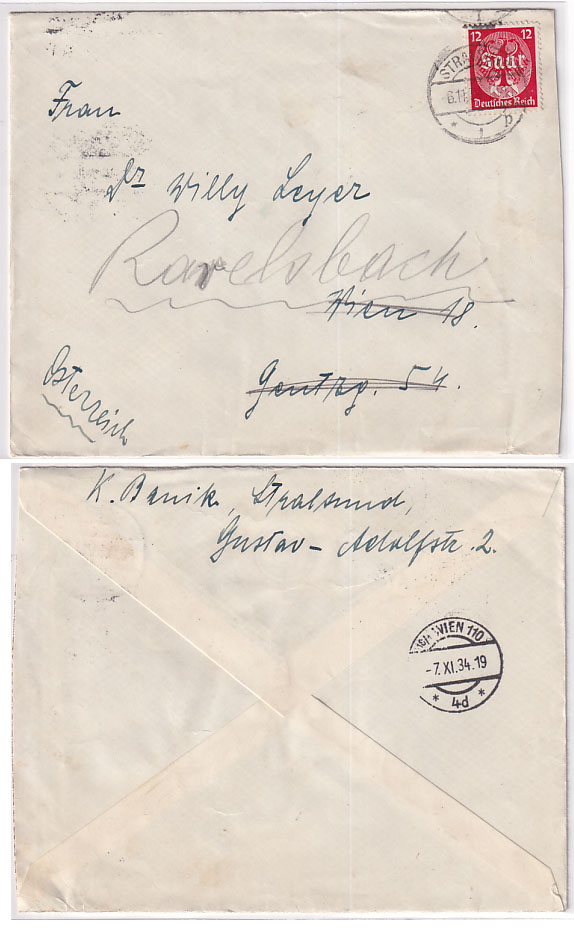 12 12
Saar
Deutsches Reich
STRAL
6.11.
1 p
Frau
Dr Willy Leyer
Ravelsbach
Wien 18.
Gentzg. 54.
Österreich
K. Banik, Stralsund,
Gustav-Adolfstr. 2.
WIEN 110
-7.XI.34.19
* 4d *